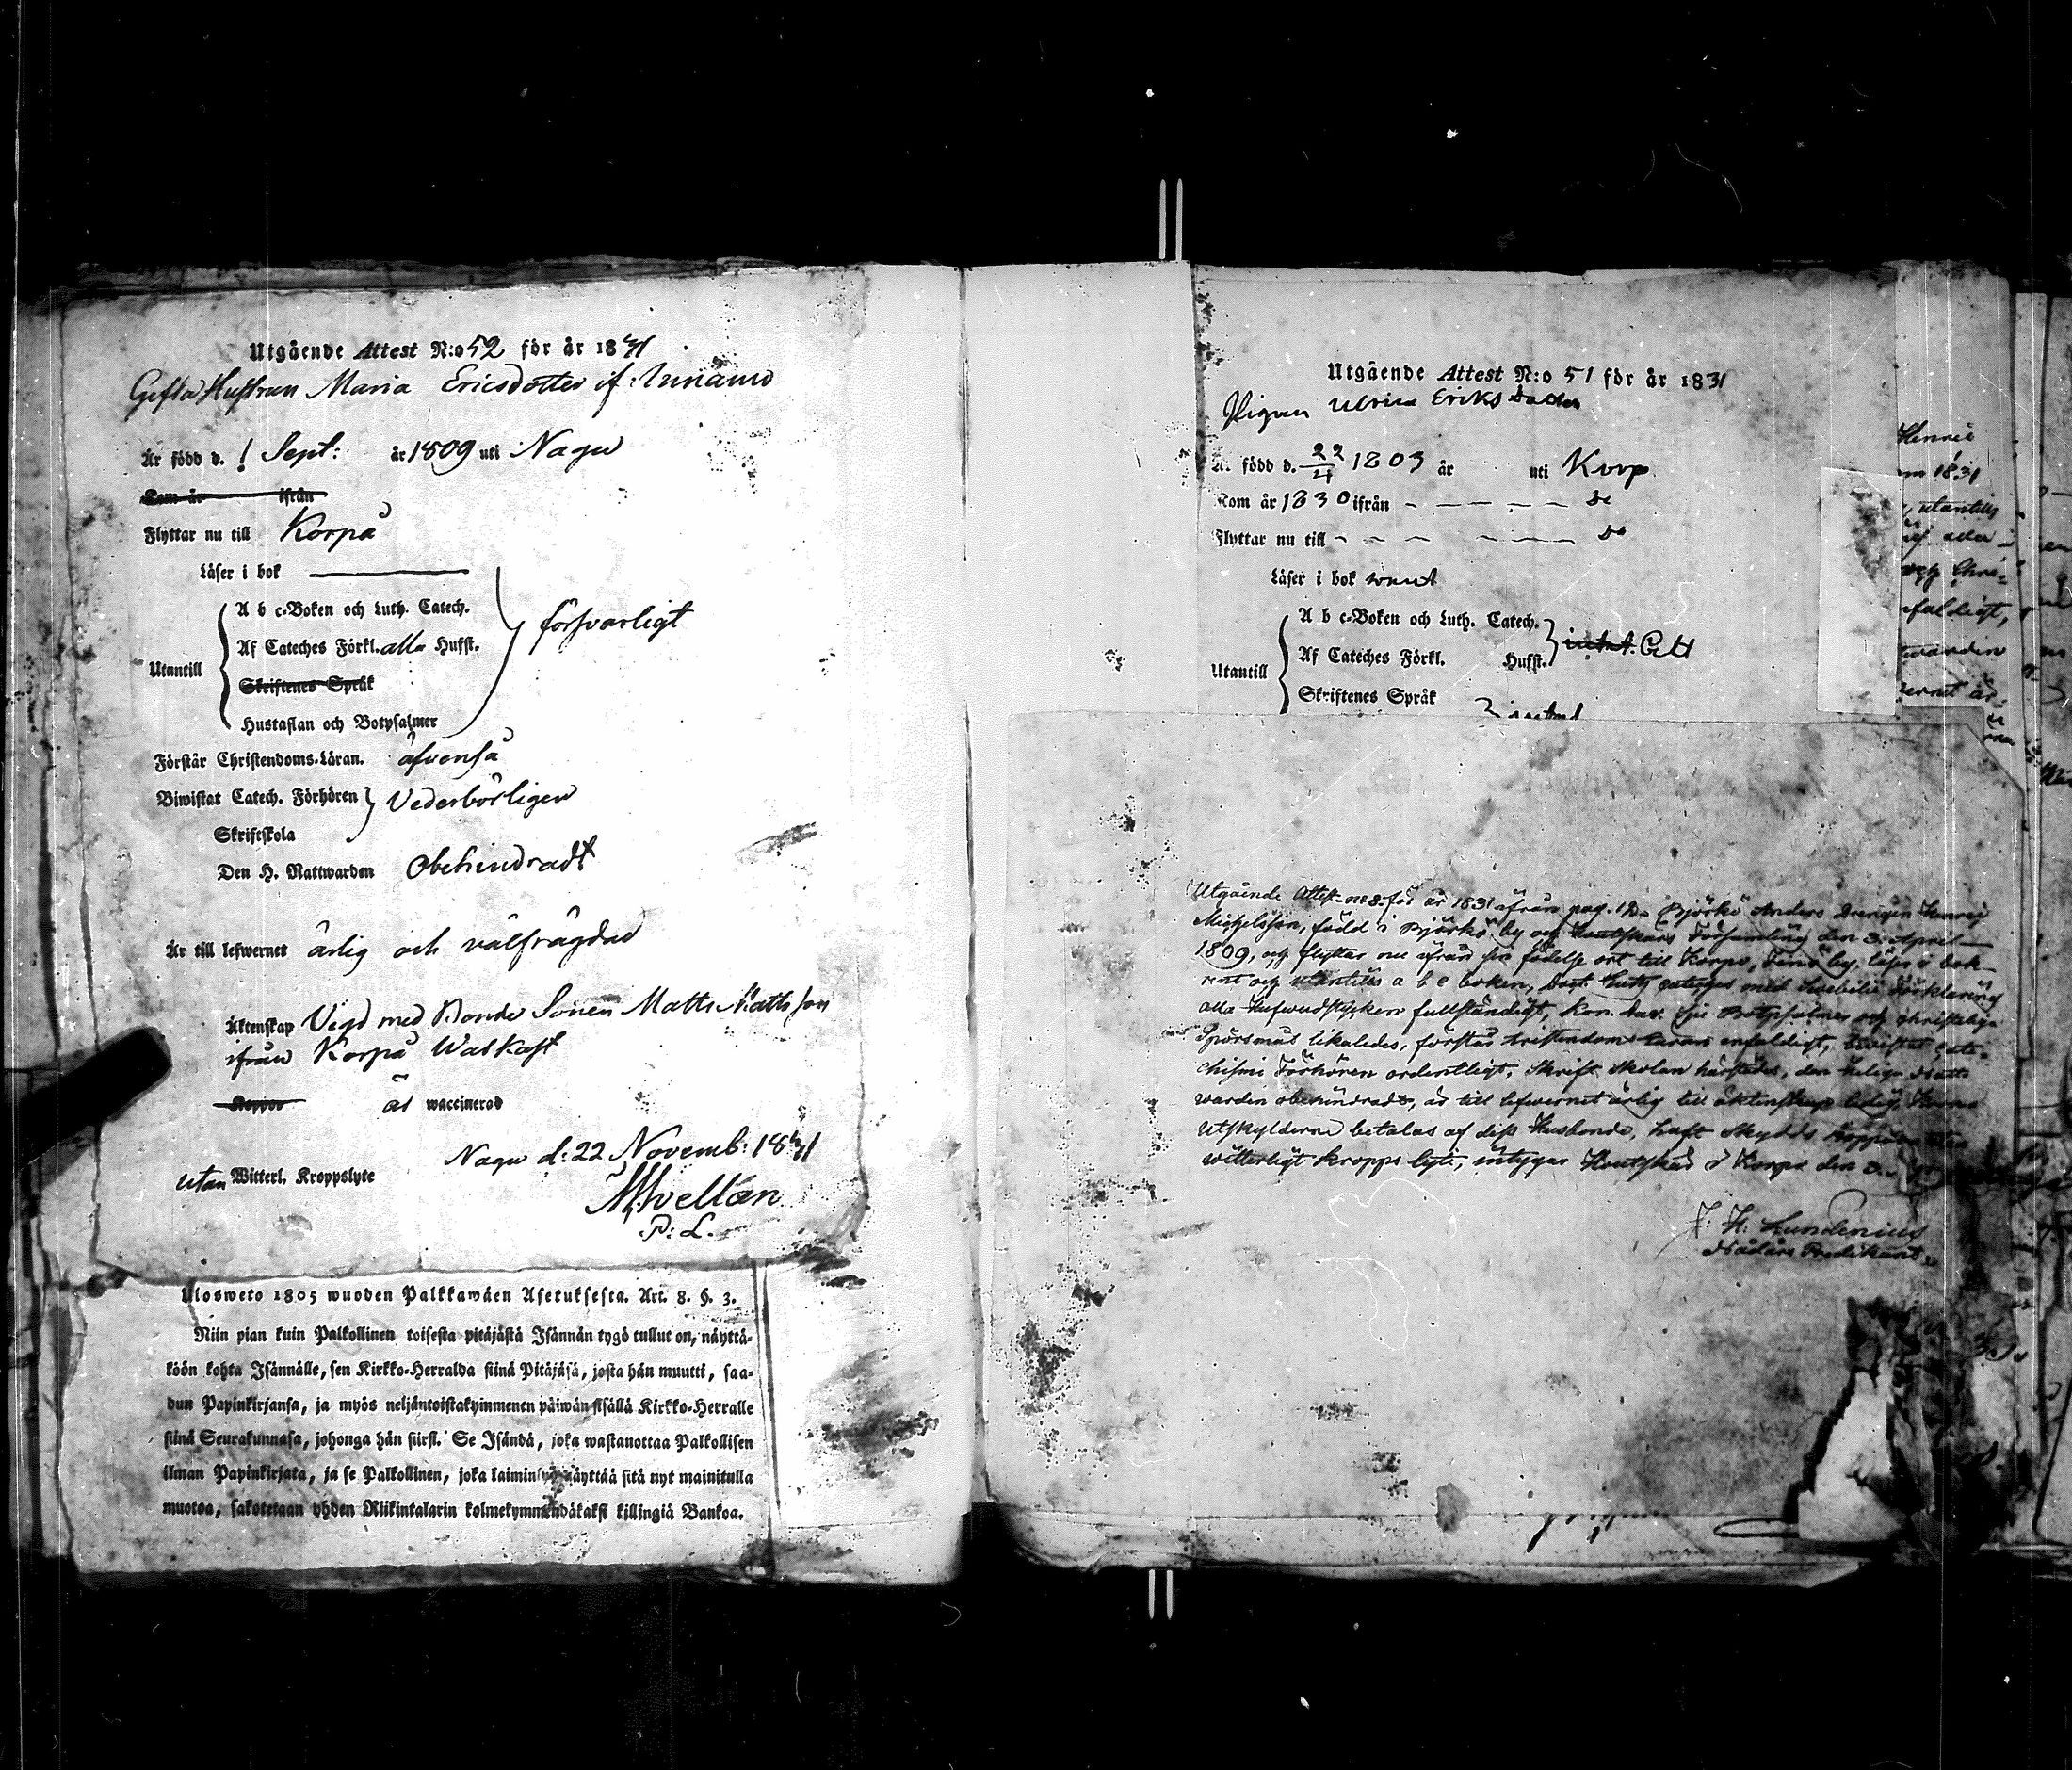 Utgående Attest N:o 52 för år 1831
Gifta Hustrun Maria Ericsdotter if.
Är född d. 1 Sept: år 1809 uti Nagu
Kom år ifrån
Flyttar nu till Korpå
Läser i bok
A b c-Boken och Luth. Catech.
Af Cateches Förkl. alla Hufst.
försvarligt
Utantill
Skriftenes Språk
Hustaflan och Botpsalmer
Förstår Christendoms-Läran. äfvenså
Biwistat Catech. Förhören
Vederbörligen
Skriftskola
Den H. Nattwarden Obehindradt
Är till lefwernet ärlig och välfrägdad
Äktenskap Vigd med Bonde Sonen Matts Mattsson
ifrån Korpå Walkast
Koppor är waccinerad
Nagu d: 22 Novemb: 1831
utan Witterl. Kroppslyte
P: L.
Ulosweto 1805 wuoden Palkkawäen Asetuksesta. Art. 8. §. 3.
Niin pian kuin Palkollinen toisesta pitäjästä Isännän tygö tullut on, näyttä-
köön kohta Isännälle, sen Kirkko-Herralda siinä Pitäjäsä, josta hän muutti, saa-
dun Papinkirjansa, ja myös neljäntoistakymmenen päiwän sisällä Kirkko-Herralle
siinä Seurakunnasa, johonga hän siirsi. Se Isändä, joka wastanottaa Palkollisen
ilman Papinkirjata, ja se Palkollinen, joka laiminlyö näyttää sitä nyt mainitulla
muotoa, sakotetaan yhden Riikintalarin kolmekymmendäkaksi killingiä Bankoa.
Utgående Attest N:o 51 för år 1831
Pigan Ulrica Eriks Dotter
Är född d. 22/4 1803 år uti Korp
Kom år 1830 ifrån - - - - - Do
Flyttar nu till - - - - - - Do
Läser i bok rent
A b c-Boken och Luth. Catech.
Af Cateches Förkl. Hufst.
Utantill
Skriftenes Språk
Utgående Attest för år 1831 ifrån pag. Björkö Anders Drengen Henric
Michelsson, född i Björkö by och Houtskärs Församling den 3. April
1809, och flyttar nu ifrån sin födelse ort till Korpo, by, läser i bok
rent och utantill a b c boken, Luth. catechis med Swebilii Förklaring
alla Hufwudstycken fullständigt, Kon. Dav. Botpsalmer och christeliga
Spörsmål likaledes, förstår kristendoms läran enfaldigt, biwistat cate-
chismi Förhören ordentligt, Skrift Skolan den helige Natt-
warden obehindradt, är till lefwernet ärlig till äktenskap ledig,
utskylderne betalas af dess Husbonde, haft Skydds koppor
witterligt kropps lyte, intygar Houtskär i Korpo den
J. H. Lundenius
Predikant